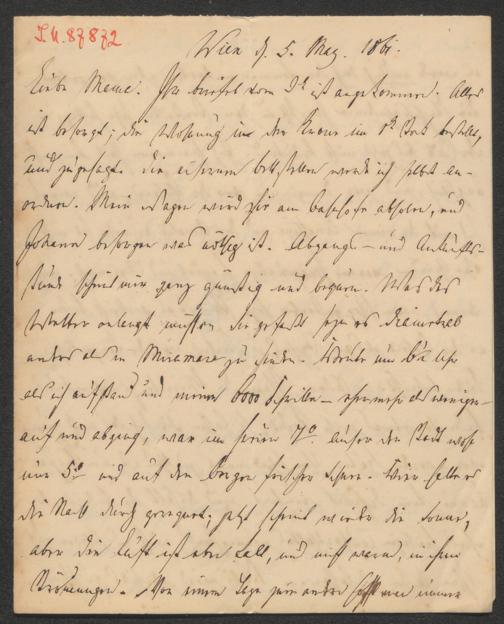 I.N. 87872
Wien d. 5. May. 1861.
Liebe Meine. Ihr brief vom 2t ist angekommen. Alles
ist besorgt; die Wohnung in der Krone im 1t Stock bestellt,
und zugesagt. die eisernen bettstellen werde ich selbst an-
ordnen. Mein Wagen wird Sie am bahnhofe abholen, und
Johann besorgen was nöthig ist. Abgangs- und Ankunfts-
stunde scheint mir ganz günstig und bequem. Was das
Wetter anlangt müssen Sie gefaßt seyn es
anders als in Miramare zu finden. Heute um Uhr
als ich aufstand und meine 6000 Schritte – eher mehr als weniger –
auf und abging, war im freien 7°. außer der Stadt wohl
nur 5° und auf den bergen frischer Schnee. hatte es
die Nacht durch geregnet; jetzt scheint wieder die Sonne,
aber die Luft ist eben kalt, und nicht warm, in ihren
Strömungen. Von einem Tage zum andern hofft man immer